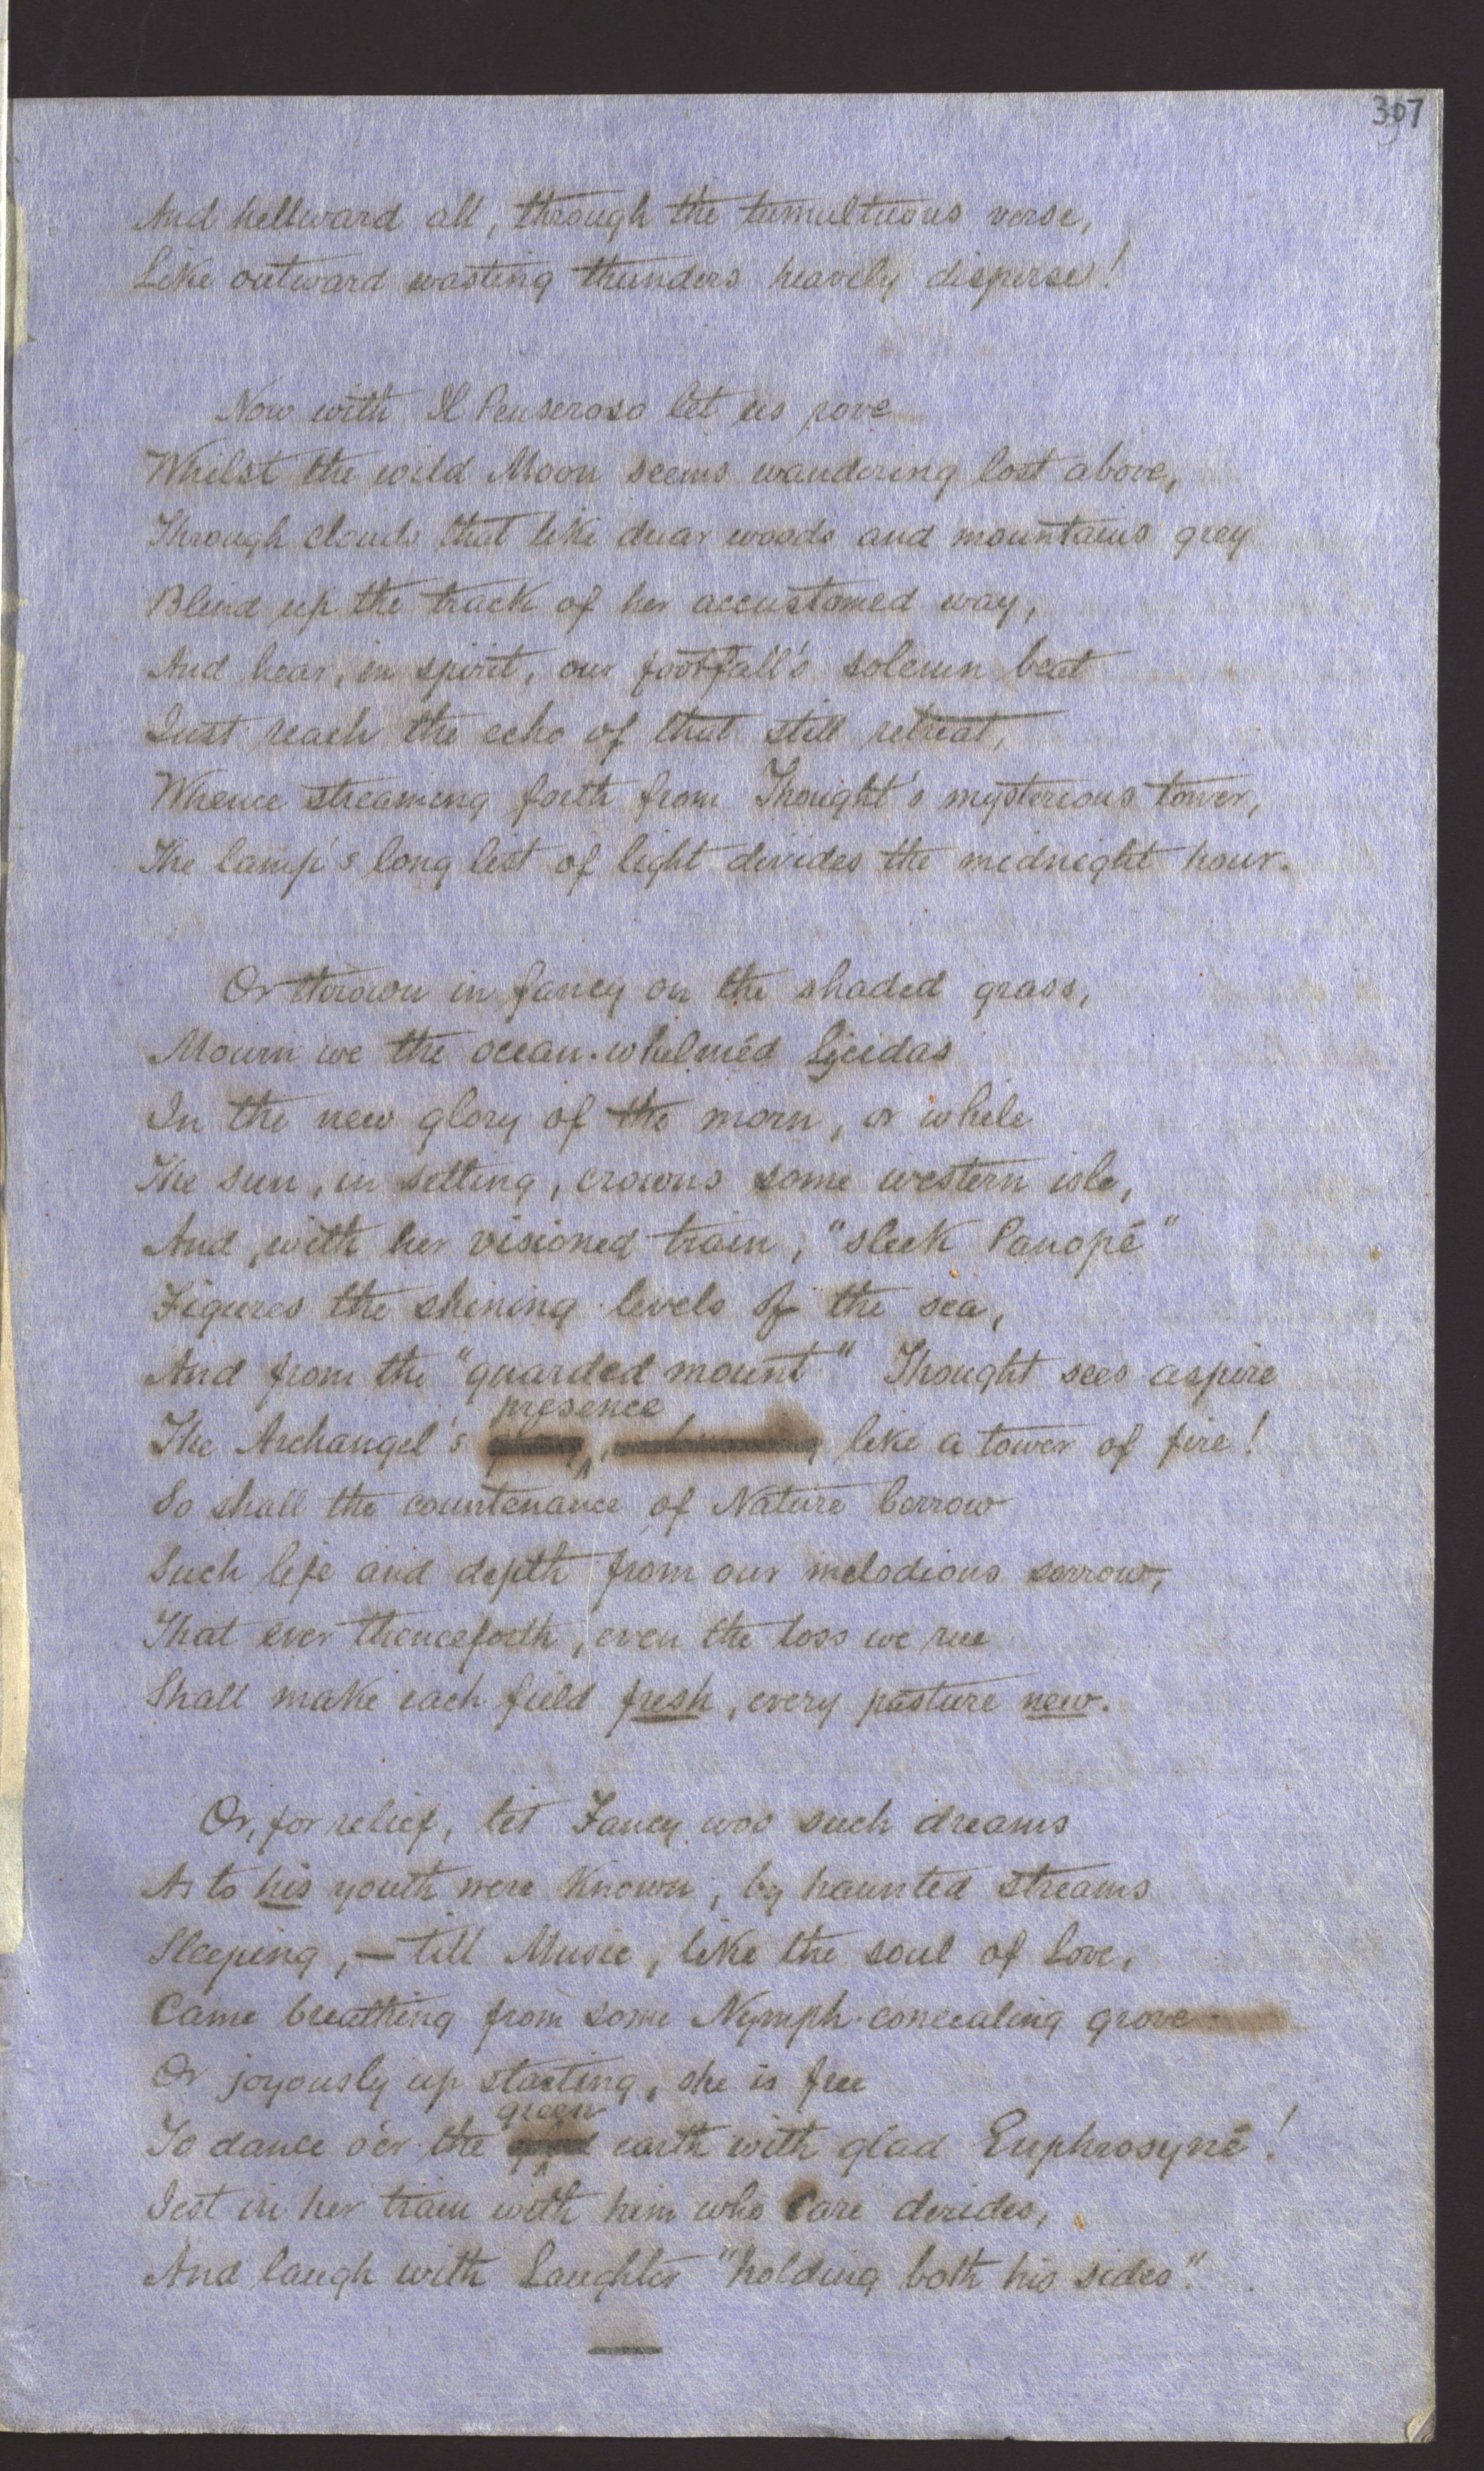 307
And hellward all, through the tumultuous verse,
Like outward wasting thunders heavily disperse!
Now with Il Penseroso let us rove
Whilst the wild Moon seems wandering lost above,
Through clouds that like drear woods and mountains grey
Blind up the track of her accustomed way,
And hear, in spirit, our footfall's solemn beat
Just reach the echo of that still retreat,
Whence streaming forth from Thought's mysterious tower,
The lamp's long list of light divides the midnight hour.
Or thrown in fancy on the shaded grass,
Mourn we the ocean-whelméd Lycidas
In the new glory of the morn, or while
The sun, in setting, crowns some western isle,
And, with her visioned train, "sleek Panopé"
Figures the shining levels of the sea,
And from the "guarded mount" Thought sees aspire
presence
The Archangel's like a tower of fire!
So shall the countenance of Nature borrow
Such life and depth from our melodious sorrow,
That ever thenceforth, even the loss we rue
Shall make each field fresh, every pasture new.
Or, for relief, let Fancy woo such dreams
As to his youth were known, by haunted streams
Sleeping,—till Music, like the soul of Love,
Came breathing from some Nymph-concealing grove
Or joyously up starting, she is free
green
To dance o'er the earth with glad Euphrosyné!
Jest in her train with him who Care derides,
And laugh with Laughter "holding both his sides".